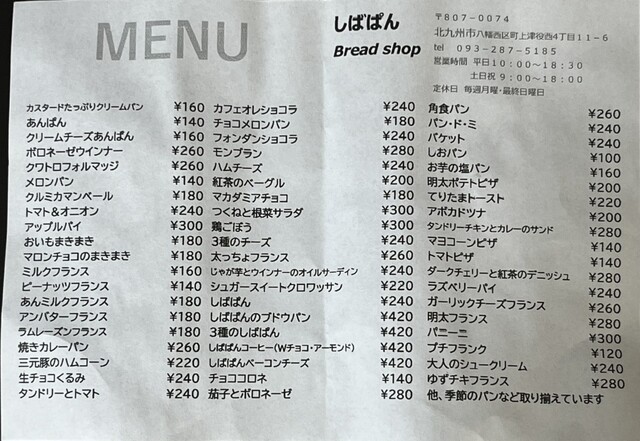 MENU
しばぱん
Bread shop
〒807-0074
北九州市八幡西区町上津役西4丁目11-6
tel 093-287-5185
営業時間 平日10:00~18:30
土日祝 9:00~18:00
定休日 毎週月曜・最終日曜日
カスタードたっぷりクリームパン ¥160
あんぱん ¥140
クリームチーズあんぱん ¥160
ボロネーゼウインナー ¥260
クワトロフォルマッジ ¥260
メロンパン ¥140
クルミカマンベール ¥180
トマト&オニオン ¥240
アップルパイ ¥300
おいもまきまき ¥180
マロンチョコのまきまき ¥180
ミルクフランス ¥160
ピーナッツフランス ¥140
あんミルクフランス ¥180
アンバターフランス ¥180
ラムレーズンフランス ¥180
焼きカレーパン ¥260
三元豚のハムコーン ¥220
生チョコくるみ ¥240
タンドリーとトマト ¥240
カフェオレショコラ ¥240
チョコメロンパン ¥180
フォンダンショコラ ¥240
モンブラン ¥280
ハムチーズ ¥240
紅茶のベーグル ¥200
マカダミアチョコ ¥200
つくねと根菜サラダ ¥300
鶏ごぼう ¥300
3種のチーズ ¥240
太っちょフランス ¥260
じゃが芋とウインナーのオイルサーディン ¥240
シュガースイートクロワッサン ¥220
しばぱん ¥420
しばぱんのブドウパン ¥420
3種のしばぱん ¥420
しばぱんコーヒー(Wチョコ・アーモンド) ¥420
しばぱんベーコンチーズ ¥420
チョココロネ ¥140
茄子とボロネーゼ ¥280
角食パン ¥260
パン・ド・ミ ¥240
バケット ¥240
しおパン ¥100
お芋の塩パン ¥160
明太ポテトピザ ¥200
てりたまトースト ¥220
アボカドツナ ¥200
タンドリーチキンとカレーのサンド ¥280
マヨコーンピザ ¥140
トマトピザ ¥140
ダークチェリーと紅茶のデニッシュ ¥280
ラズベリーパイ ¥240
ガーリックチーズフランス ¥260
明太フランス ¥280
パニーニ ¥300
プチフランク ¥120
大人のシュークリーム ¥240
ゆずチキフランス ¥280
他、季節のパンなど取り揃えています